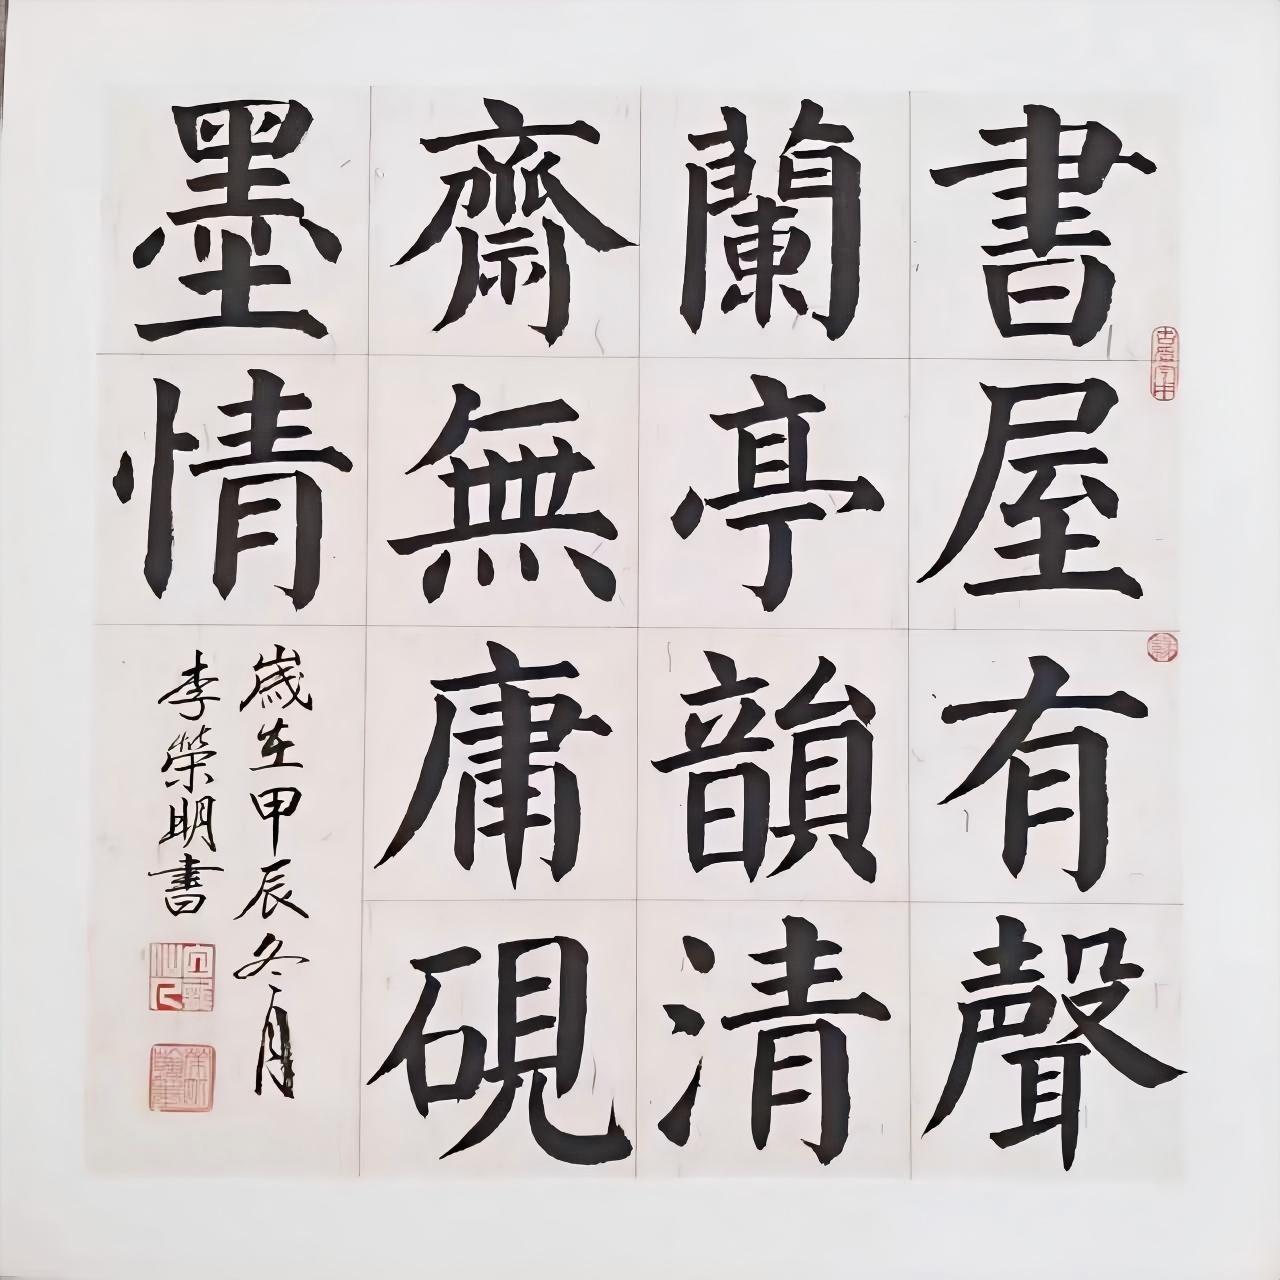 書屋有聲
蘭亭韻清
齋無庸硯
墨情
歲在甲辰冬月
李榮明書